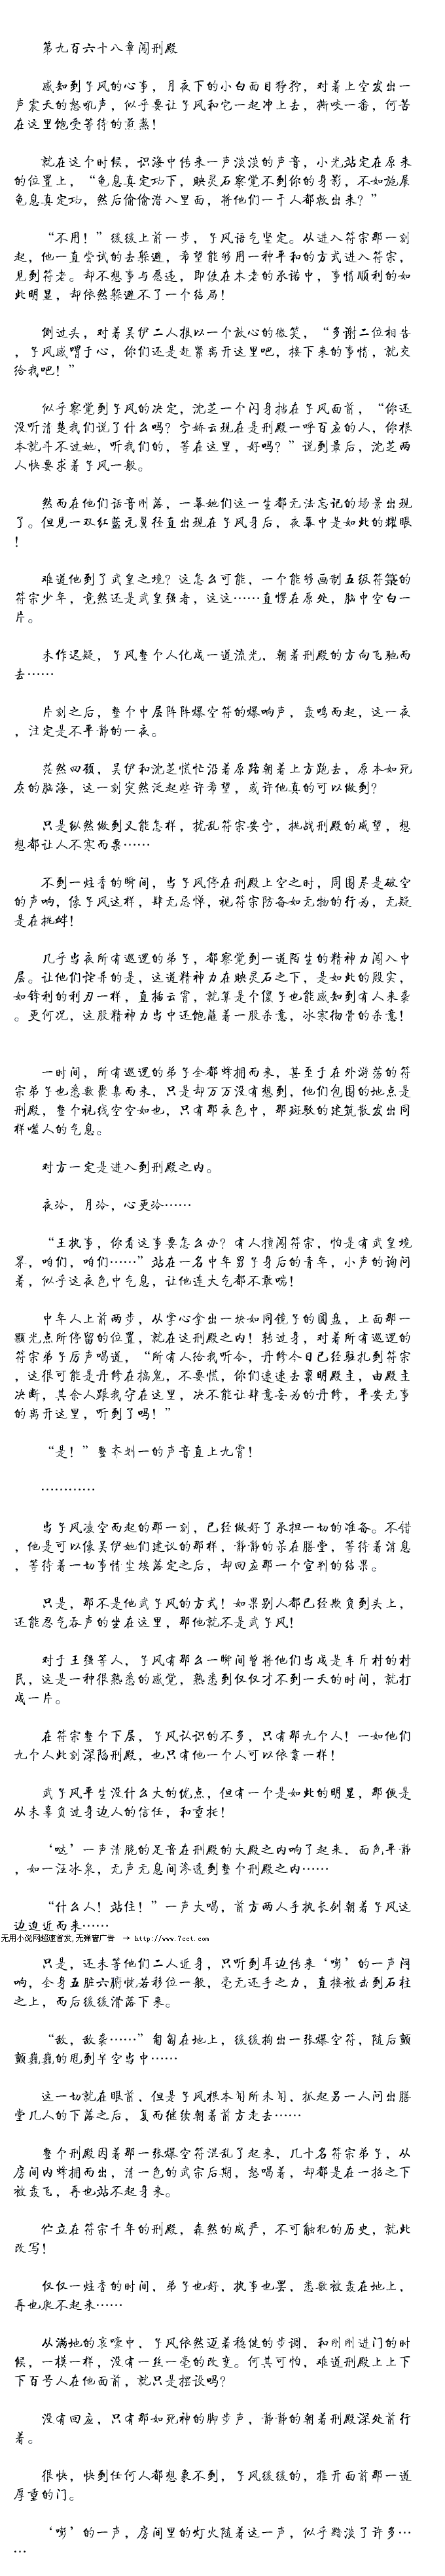 第九百六十八章闯刑殿
感知到子风的心事，月夜下的小白面目狰狞，对着上空发出一
声震天的怒吼声，似乎要让子风和它一起冲上去，撕咬一番，何苦
在这里饱受等待的煎熬！
就在这个时候，识海中传来一声淡淡的声音，小光站定在原来
的位置上，“龟息真定功下，映灵石察觉不到你的身影，不如施展
龟息真定功，然后偷偷潜入里面，将他们一干人都救出来？”
“不用！”缓缓上前一步，子风语气坚定。从进入符宗那一刻
起，他一直尝试的去躲避，希望能够用一种平和的方式进入符宗，
见到符老。却不想事与愿违，即使在木老的承诺中，事情顺利的如
此明显，却依然躲避不了一个结局！
侧过头，对着吴伊二人报以一个放心的微笑，“多谢二位相告
，子风感喟于心，你们还是赶紧离开这里吧，接下来的事情，就交
给我吧！”
似乎察觉到子风的决定，沈芝一个闪身挡在子风面前，“你还
没听清楚我们说了什么吗？宁娇云现在是刑殿一呼百应的人，你根
本就斗不过她，听我们的，等在这里，好吗？”说到最后，沈芝两
人快要求着子风一般。
然而在他们话音刚落，一幕她们这一生都无法忘记的场景出现
了。但见一双红蓝元翼径直出现在子风身后，夜幕中是如此的耀眼
！
难道他到了武皇之境？这怎么可能，一个能够画制五级符箓的
符宗少年，竟然还是武皇强者，这这……直愣在原处，脑中空白一
片。
未作迟疑，子风整个人化成一道流光，朝着刑殿的方向飞驰而
去……
片刻之后，整个中层阵阵爆空符的爆响声，轰鸣而起，这一夜
，注定是不平静的一夜。
茫然四顾，吴伊和沈芝慌忙沿着原路朝着上方跑去，原本如死
灰的脑海，这一刻突然泛起些许希望，或许他真的可以做到？
只是纵然做到又能怎样，扰乱符宗安宁，挑战刑殿的威望，想
想都让人不寒而栗……
不到一炷香的瞬间，当子风停在刑殿上空之时，周围尽是破空
的声响，像子风这样，肆无忌惮，视符宗防备如无物的行为，无疑
是在挑衅！
几乎当夜所有巡逻的弟子，都察觉到一道陌生的精神力闯入中
层。让他们诧异的是，这道精神力在映灵石之下，是如此的殷实，
如锋利的利刃一样，直插云霄，就算是个傻子也能感知到有人来袭
。更何况，这股精神力当中还饱蘸着一股杀意，冰寒彻骨的杀意！
一时间，所有巡逻的弟子全都蜂拥而来，甚至于在外游荡的符
宗弟子也悉数聚集而来，只是却万万没有想到，他们包围的地点是
刑殿，整个视线空空如也，只有那夜色中，那斑驳的建筑散发出同
样噬人的气息。
对方一定是进入到刑殿之内。
夜冷，月冷，心更冷……
“王执事，你看这事要怎么办？有人擅闯符宗，怕是有武皇境
界，咱们，咱们……”站在一名中年男子身后的青年，小声的询问
着，似乎这夜色中气息，让他连大气都不敢喘！
中年人上前两步，从掌心拿出一块如同镜子的圆盘，上面那一
颗光点所停留的位置，就在这刑殿之内！转过身，对着所有巡逻的
符宗弟子厉声喝道，“所有人给我听令，丹修今日已经驻扎到符宗
，这很可能是丹修在搞鬼，不要慌，你们速速去禀明殿主，由殿主
决断，其余人跟我守在这里，决不能让肆意妄为的丹修，平安无事
的离开这里，听到了吗！”
“是！”整齐划一的声音直上九霄！
…………
当子风凌空而起的那一刻，已经做好了承担一切的准备。不错
，他是可以像吴伊她们建议的那样，静静的呆在膳堂，等待着消息
，等待着一切事情尘埃落定之后，却回应那一个宣判的结果。
只是，那不是他武子风的方式！如果别人都已经欺负到头上，
还能忍气吞声的坐在这里，那他就不是武子风！
对于王强等人，子风有那么一瞬间曾将他们当成是车斤村的村
民，这是一种很熟悉的感觉，熟悉到仅仅才不到一天的时间，就打
成一片。
在符宗整个下层，子风认识的不多，只有那九个人！一如他们
九个人此刻深陷刑殿，也只有他一个人可以依靠一样！
武子风平生没什么大的优点，但有一个是如此的明显，那便是
从未辜负过身边人的信任，和重托！
‘哒’一声清脆的足音在刑殿的大殿之内响了起来，面色平静
，如一汪冰泉，无声无息间渗透到整个刑殿之内……
“什么人！站住！”一声大喝，前方两人手执长剑朝着子风这
边迫近而来……
无用小说网超速首发,无弹窗广告 → http://www.7cct.com
只是，还未等他们二人近身，只听到耳边传来‘嘭’的一声闷
响，全身五脏六腑恍若移位一般，毫无还手之力，直接被击到石柱
之上，而后缓缓滑落下来。
“敌，敌袭……”匍匐在地上，缓缓掏出一张爆空符，随后颤
颤巍巍的甩到半空当中……
这一切就在眼前，但是子风根本闻所未闻，抓起另一人问出膳
堂几人的下落之后，复而继续朝着前方走去……
整个刑殿因着那一张爆空符混乱了起来，几十名符宗弟子，从
房间内蜂拥而出，清一色的武宗后期，怒喝着，却都是在一招之下
被轰飞，再也站不起身来。
伫立在符宗千年的刑殿，森然的威严，不可触犯的历史，就此
改写！
仅仅一炷香的时间，弟子也好，执事也罢，悉数被轰在地上，
再也爬不起来……
从满地的哀嚎中，子风依然迈着稳健的步调，和刚刚进门的时
候，一模一样，没有一丝一毫的改变。何其可怕，难道刑殿上上下
下百号人在他面前，就只是摆设吗？
没有回应，只有那如死神的脚步声，静静的朝着刑殿深处前行
着。
很快，快到任何人都想象不到，子风缓缓的，推开面前那一道
厚重的门。
‘嘭’的一声，房间里的灯火随着这一声，似乎黯淡了许多…
…